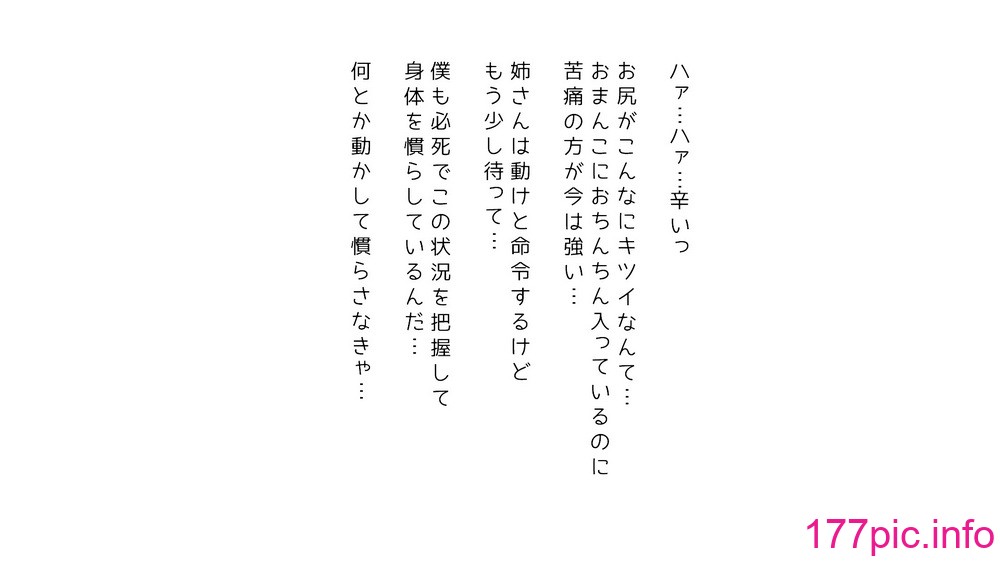 ハァ…ハァ…辛いっ
お尻がこんなにキツイなんて…
おまんこにおちんちん入っているのに
苦痛の方が今は強い…
姉さんは動けと命令するけど
もう少し待って…
僕も必死でこの状況を把握して
身体を慣らしているんだ…
何とか動かして慣らさなきゃ…
177pic.info